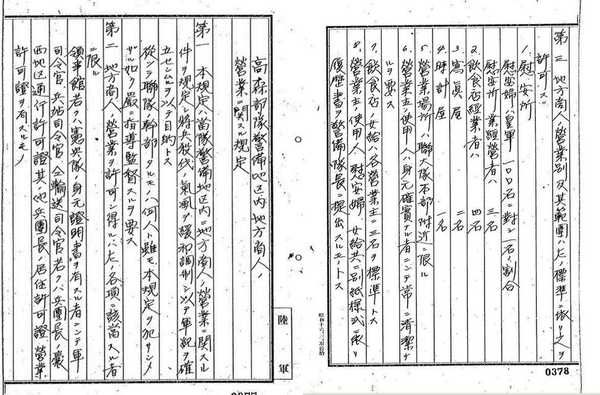 高森部隊警備地区内地方商人ノ
営業ニ関スル規定
第一 本規定ハ當隊警備地区内ニ地方商人ノ営業ニ関スル
件ヲ規定シ将兵ノ殺伐ノ氣風ヲ緩和調制シ以テ軍紀ヲ確
立セシムルヲ以テ目的トス
從ツテ聯隊幹部タルモノハ何人ト雖モ本規定ヲ犯サシメ
ザル如ク嚴ニ指導監督スルヲ要ス
第二 地方商人ノ営業ヲ許可シ得ルハ左ノ各項ニ該當スル者
ニ限ル
領事館若クハ憲兵隊ノ身元證明書ヲ有スル者ニシテ軍
司令官兵站司令官輸送司令官若クハ兵團長ノ蒙
西地区通行許可證其ノ他兵團長ノ居住許可證営業
許可證ヲ有スルモノ
陸軍
第三 地方商人ノ営業別及其ノ範圍ハ左ノ標準ニ依リ之ヲ
許可ス
1、慰安所
慰安婦ハ皇軍一〇〇名ニ對シ一名ノ割合
慰安所ノ業経営者ハ 三名
2、飲食店経営者 四名
3、寫眞屋 二名
4、時計屋 一名
5、営業場所ハ聯大隊本部附近ニ限ル
6、営業主使用人ハ身元確實ナル者ニシテ常ニ清潔ナ
ルヲ要ス
7、飲食店ノ女給ハ各営業主ニ三名ヲ標準トス
8、営業主使用人慰安婦女給共ニ別紙様式ニ依リ
履歴書ヲ警備隊長ニ提出スルモノトス
0378